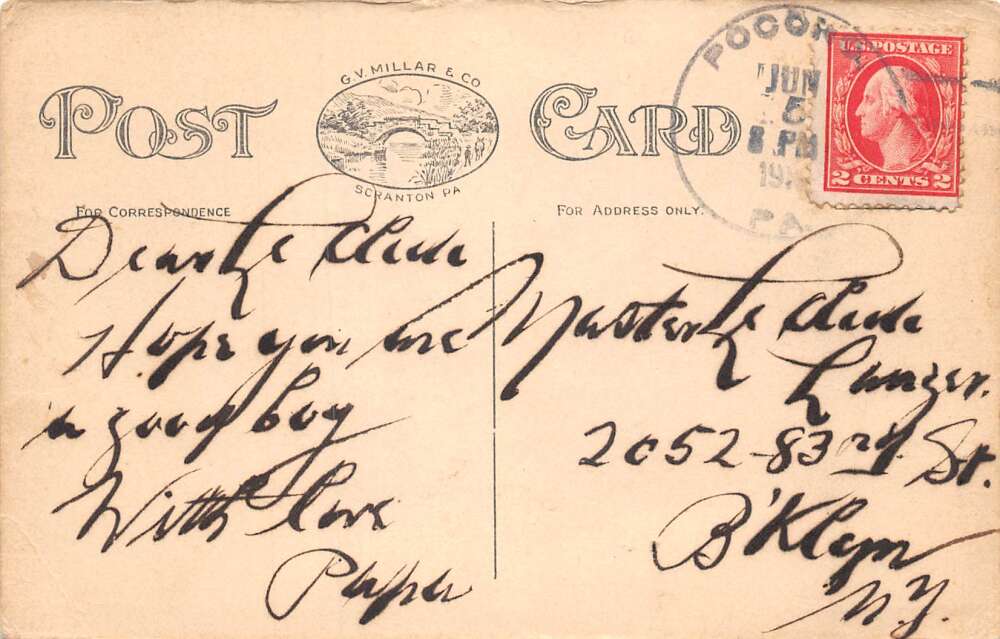 POST CARD
G.V. MILLAR & CO
SCRANTON PA
POCONO
JUN
5
8 PM
19
PA
U.S. POSTAGE
2 CENTS 2
FOR CORRESPONDENCE
FOR ADDRESS ONLY.
Dear Le Clede
Hope you are
a good boy
With love
Papa
Master Le Clede
Langer.
2052-83rd. St.
B'Klyn
N.Y.